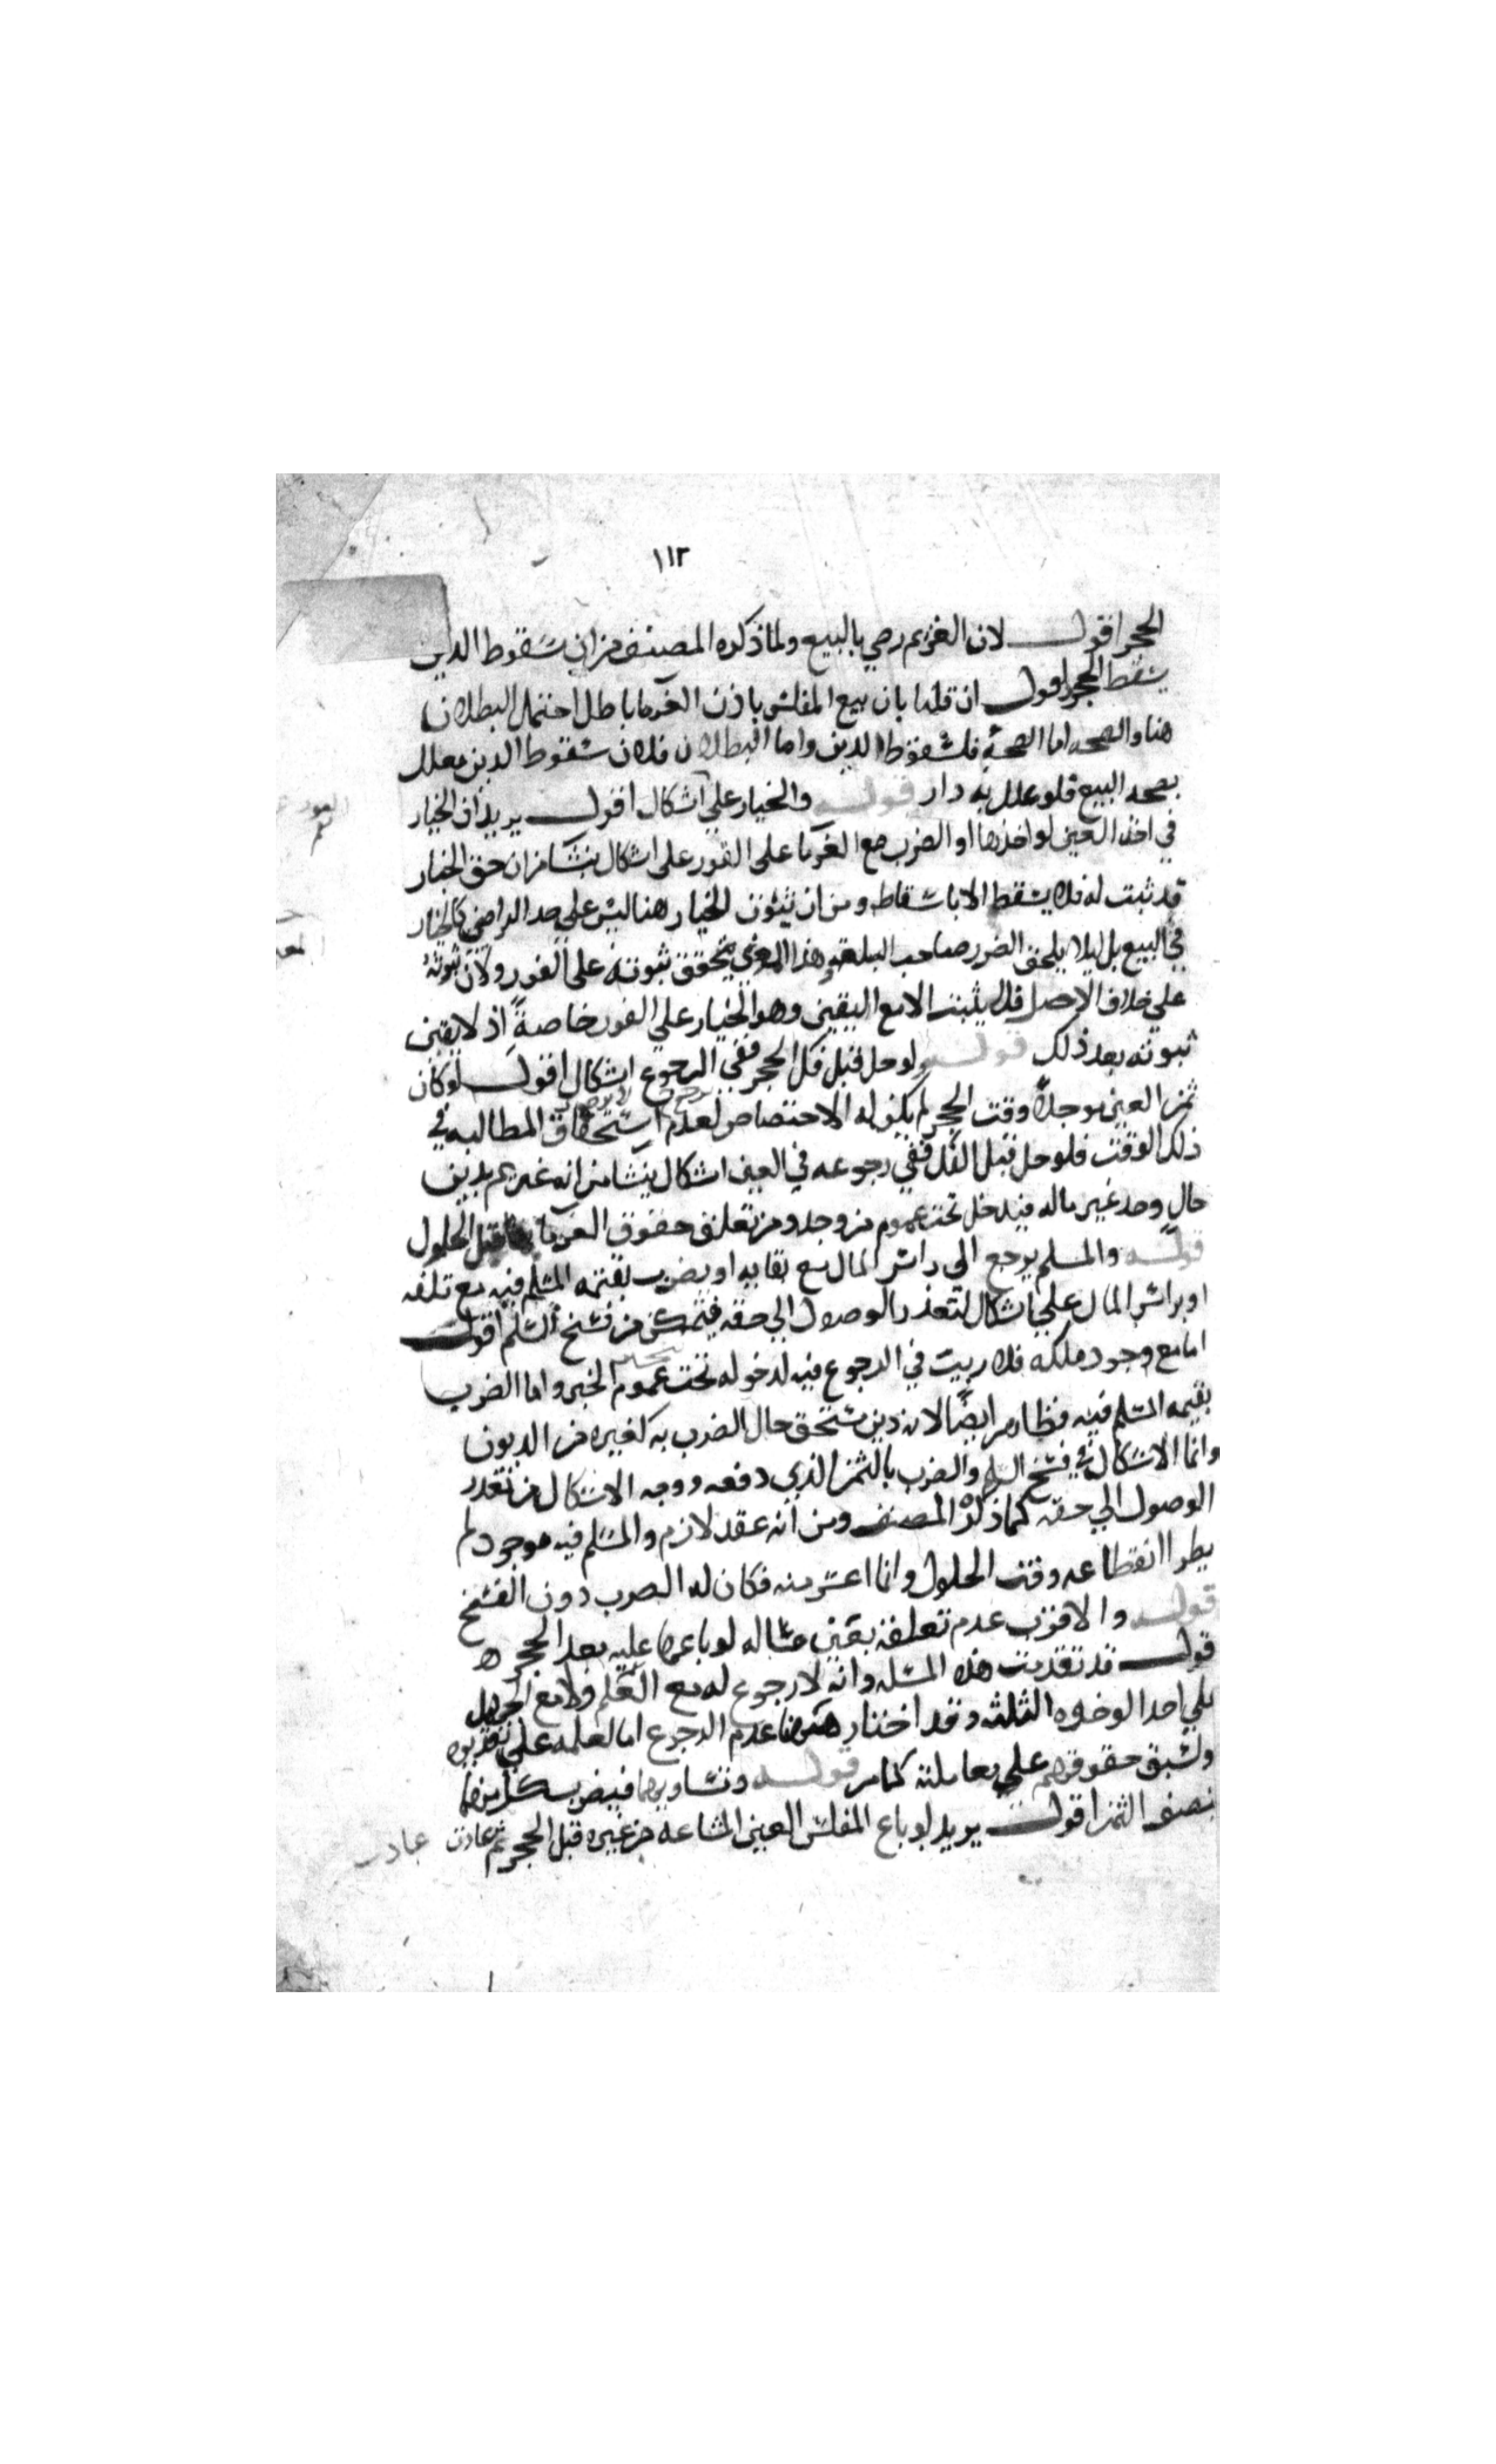 ١١٢
الحجر اقول لان الغريم رضي بالبيع ولما ذكره المصنف من ان سقوط الدين
يسقط الحجر اقول ان قلنا بان بيع المفلس باذن الغرما باطل احتمل البطلان
هنا والصحه اما الصحة فلسقوط الدين واما البطلان فلان سقوط الدين معلل
بصحه البيع فلو علل به دار قوله والخيار علي اشكال اقول يريد ان الخيار
في اخذ العين لو اخذها او الضرب مع الغرما علي الفور علي اشكال ينشا من ان حق الخيار
قد ثبت له فلا يسقط الا باسقاطه ومن ان ثبوت الخيار هنا ليس علي حد التراضي كالخيار
في البيع بل ليلا يلحق الضرر صاحب السلعه وهذا المعني يتحقق ثبوته علي الفور ولان ثبوته
علي خلاف الاصل فلا يثبت الا مع اليقين وهو الخيار علي الفور خاصةً اذ لا يقين
ثبوته بعد ذلك قوله ولو حل قبل فك الحجر ففي الرجوع اشكال اقول لو كان
ثمن العين موجلاً وقت الحجر لم يكن له الاختصاص لعدم استحقاق المطالبه في
ذلك الوقت فلو حل قبل الفك ففي رجوعه في العين اشكال ينشا من انه غريم بدين
حالٍ وجد غير ماله فيدخل تحت عموم من وجد ومن تعلق حقوق الغرما بها قبل الحلول
قوله والمسلم يرجع الي راس المال مع بقايه او يضرب بقيمه المسلم فيه مع تلفه
او براس المال علي اشكال لتعذر الوصول الي حقه فيتمكن من فسخ السلم اقول
اما مع وجود ملكه فلا ريب في الرجوع فيه لدخوله تحت عموم الخبر واما الضرب
بقيمه المسلم فيه فظاهر ايضًا لانه دين مستحق حال الضرب به كغيره من الديون
وانما الاشكال في فسخ السلم والضرب بالثمن الذي دفعه ووجه الاشكال من تعذر
الوصول الي حقه كما ذكره المصنف ومن انه عقد لازم والمسلم فيه موجود لم
يطرا انقطاعه وقت الحلول وانما اعسر منه فكان له الضرب دون الفسخ
قوله والاقرب عدم تعلقه بعين متاله لو باعها عليه بعد الحجر
قوله قد تقدمت هذه المسله وانه لا رجوع له مع العلم ولا مع الجهل
علي احد الوجوه الثلثه وقد اختار هنا عدم الرجوع اما لعلمه علي
ولسبق حقوقهم علي معاملته كما مر قوله وتساويها فيضرب بكل منهما
نصف الثمن اقول يريد لو باع المفلس العين المشاعه من غيره قبل الحجر ثم عادت